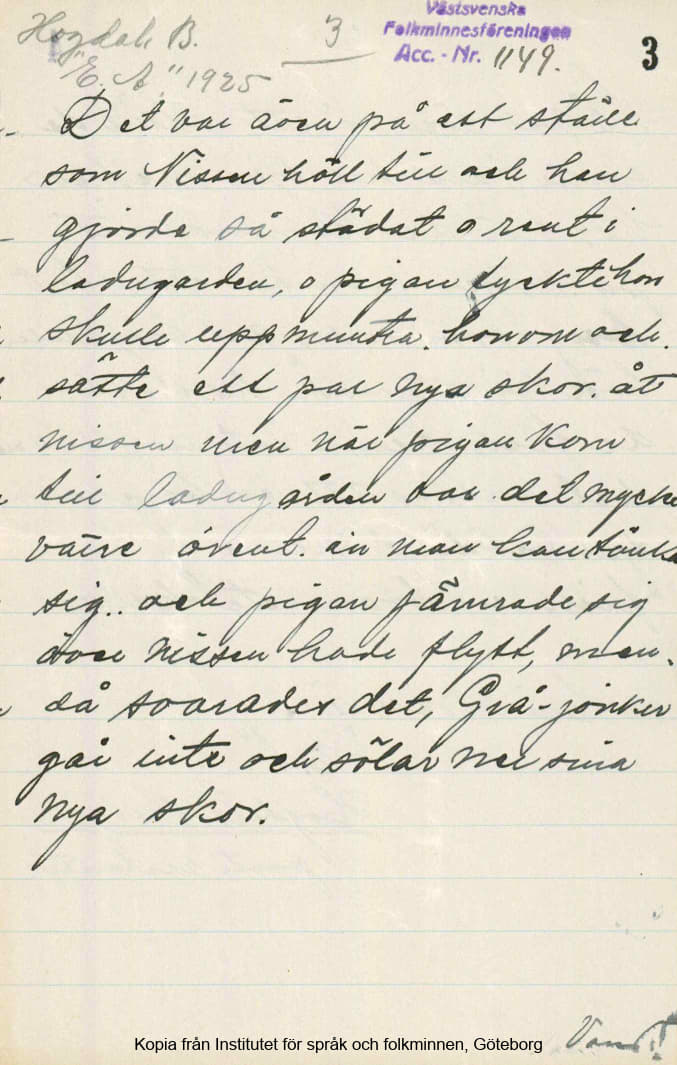 Hogdal B.
3
Västsvenska
Folkminnesföreningen
Acc. - Nr. 1149.
3
"E. A." 1925
Det var även på ett ställe
som Nissen höll till och han
gjorde så städat o rent i
ladugarden, o pigan tyckte hon
skulle uppmuntra honom och
sätte ett par nya skor. åt
nissen men när pigan kom
till ladugården var det mycke
värre orent. än man kan tänka
sig.. och pigan jämrade sig
över nissen hade flytt, men
då svarades det, Grå-jonker
går inte och sölar ner sina
nya skor.
Vänd!
Kopia från Institutet för språk och folkminnen, Göteborg